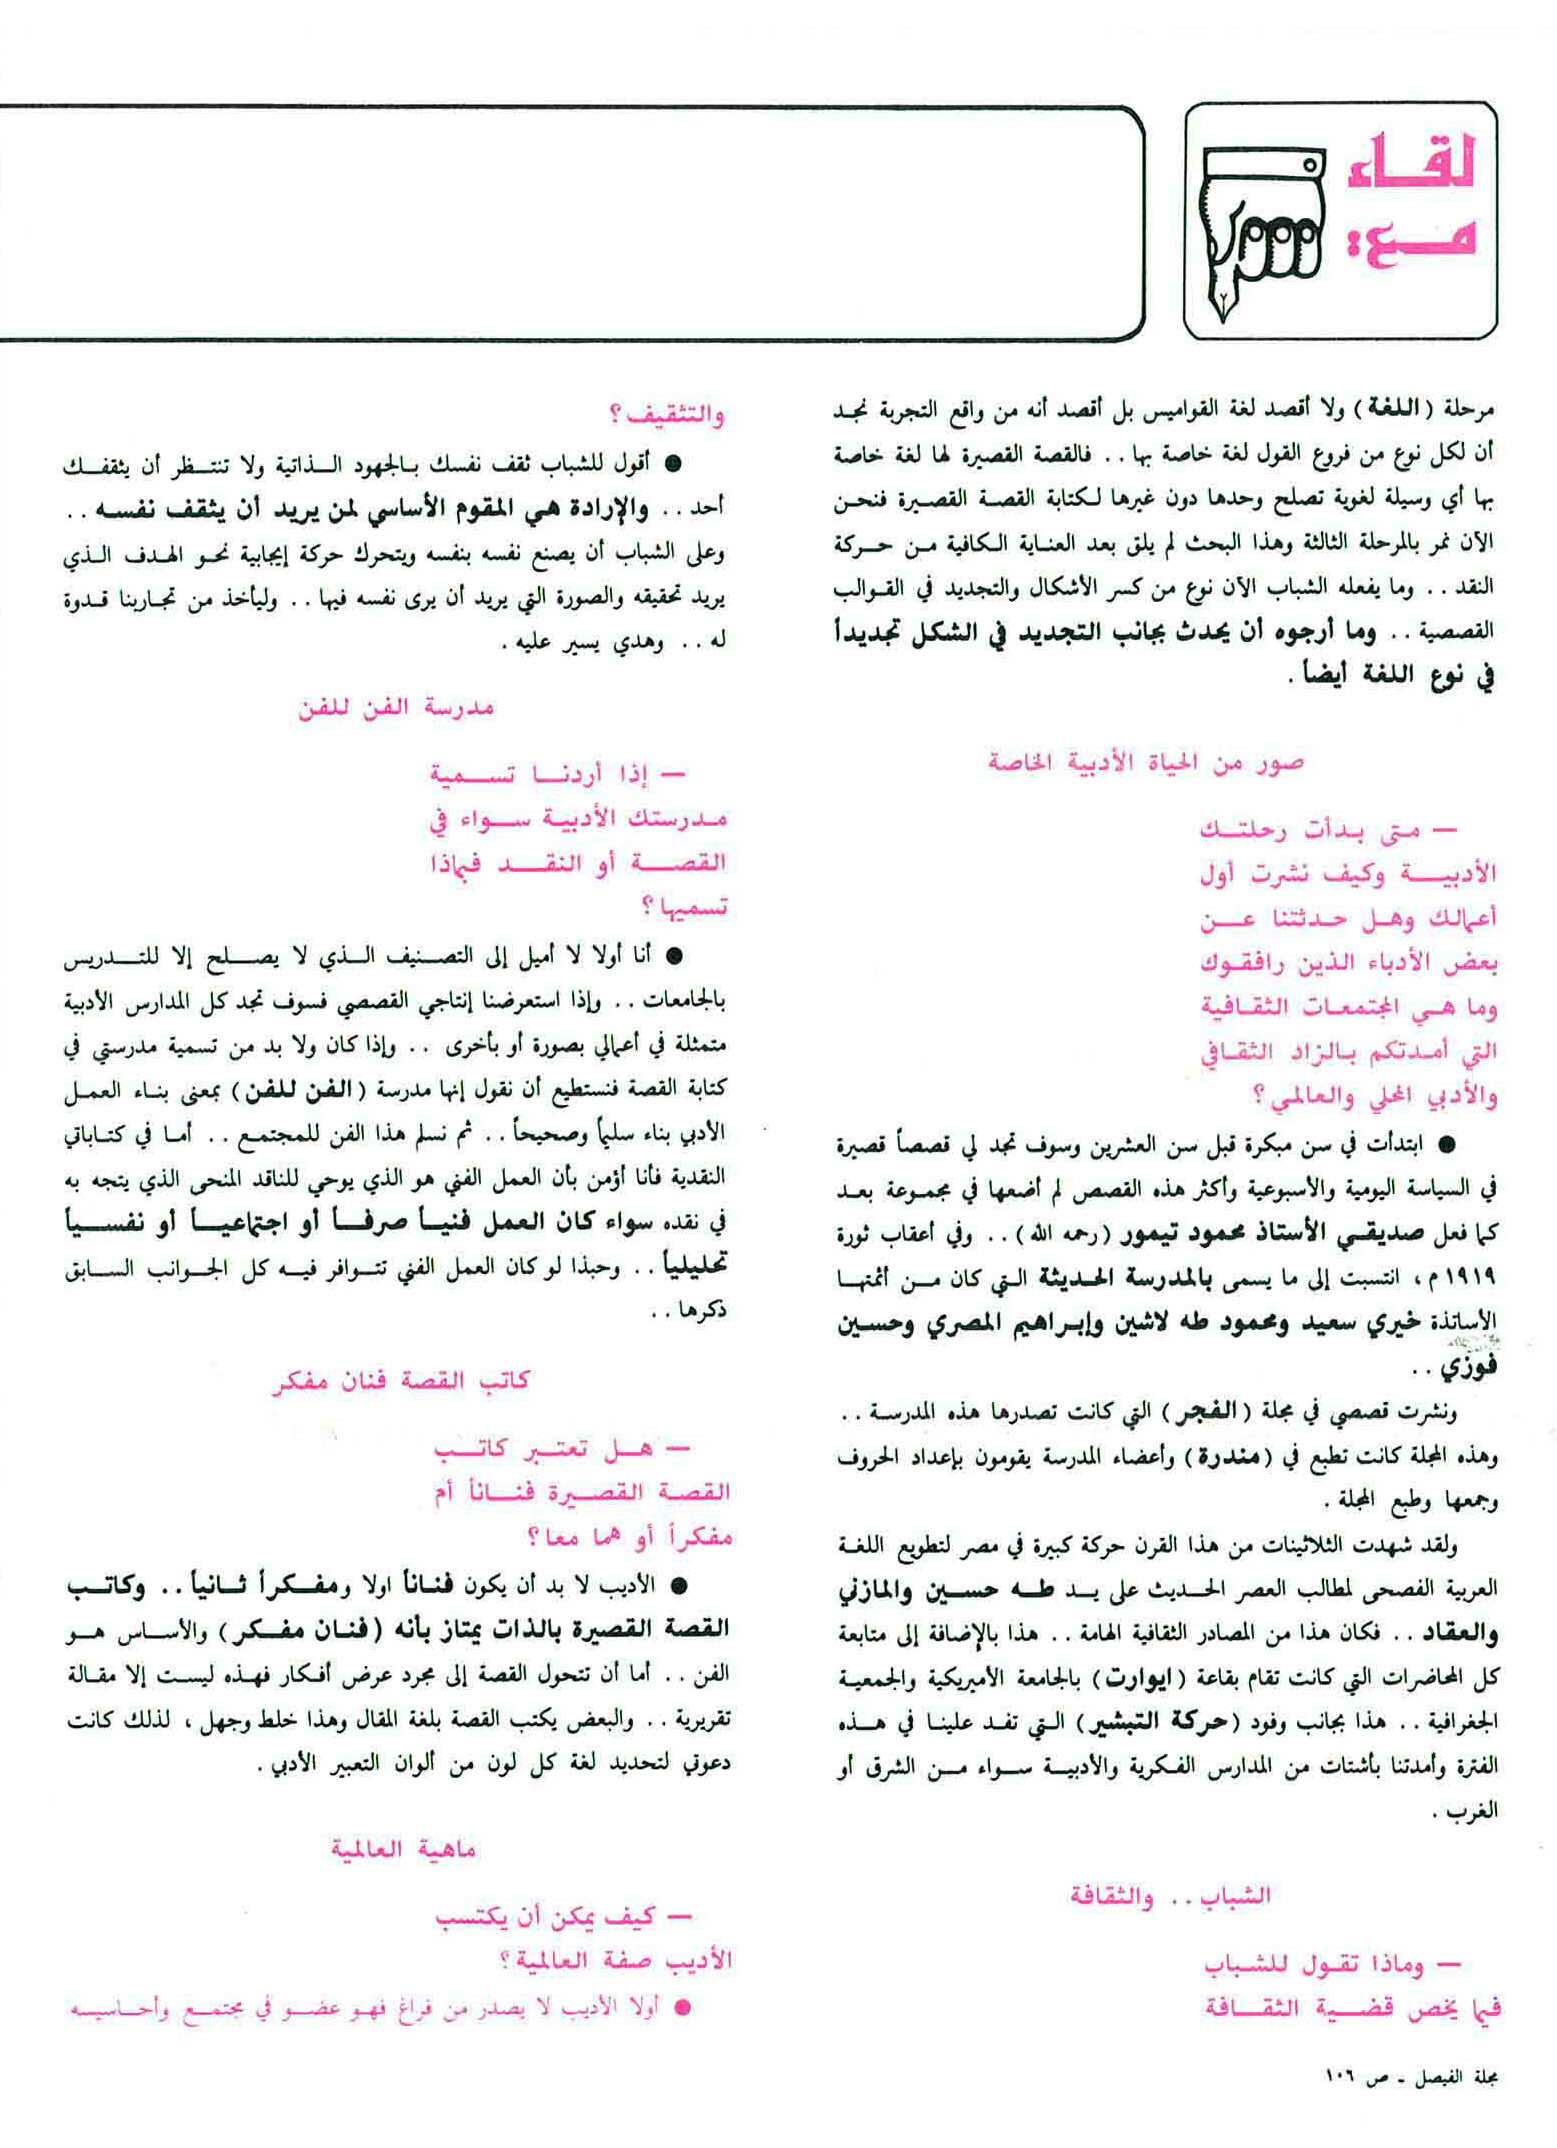 لقاء
مع:
مرحلة (اللغة) ولا أقصد لغة القواميس بل أقصد أنه من واقع التجربة نجد
أن لكل نوع من فروع القول لغة خاصة بها .. فالقصة القصيرة لها لغة خاصة
بها أي وسيلة لغوية تصلح وحدها دون غيرها لكتابة القصة القصيرة فنحن
الآن نمر بالمرحلة الثالثة وهذا البحث لم يلق بعد العناية الكافية من حركة
النقد .. وما يفعله الشباب الآن نوع من كسر الأشكال والتجديد في القوالب
القصصية .. وما أرجوه أن يحدث بجانب التجديد في الشكل تجديداً
في نوع اللغة أيضاً .
صور من الحياة الأدبية الخاصة
— متى بدأت رحلتك
الأدبية وكيف نشرت أول
أعمالك وهل حدثتنا عن
بعض الأدباء الذين رافقوك
وما هي المجتمعات الثقافية
التي أمدتكم بالزاد الثقافي
والأدبي المحلي والعالمي؟
● ابتدأت في سن مبكرة قبل سن العشرين وسوف تجد لي قصصاً قصيرة
في السياسة اليومية والأسبوعية وأكثر هذه القصص لم أضعها في مجموعة بعد
كما فعل صديقي الأستاذ محمود تيمور (رحمه الله) .. وفي أعقاب ثورة
١٩١٩م ، انتسبت إلى ما يسمى بالمدرسة الحديثة التي كان من أئمتها
الأساتذة خيري سعيد ومحمود طه لاشين وإبراهيم المصري وحسين
فوزي ..
ونشرت قصصي في مجلة (الفجر) التي كانت تصدرها هذه المدرسة ..
وهذه المجلة كانت تطبع في (مندرة) وأعضاء المدرسة يقومون بإعداد الحروف
وجمعها وطبع المجلة .
ولقد شهدت الثلاثينات من هذا القرن حركة كبيرة في مصر لتطويع اللغة
العربية الفصحى لمطالب العصر الحديث على يد طه حسين والمازني
والعقاد .. فكان هذا من المصادر الثقافية الهامة .. هذا بالإضافة إلى متابعة
كل المحاضرات التي كانت تقام بقاعة (ايوارت) بالجامعة الأميريكية والجمعية
الجغرافية .. هذا بجانب وفود (حركة التبشير) التي تفد علينا في هذه
الفترة وأمدتنا بأشتات من المدارس الفكرية والأدبية سواء من الشرق أو
الغرب .
الشباب .. والثقافة
— وماذا تقول للشباب
فيما يخص قضية الثقافة
والتثقيف؟
● أقول للشباب ثقف نفسك بالجهود الذاتية ولا تنتظر أن يثقفك
أحد .. والإرادة هي المقوم الأساسي لمن يريد أن يثقف نفسه ..
وعلى الشباب أن يصنع نفسه بنفسه ويتحرك حركة إيجابية نحو الهدف الذي
يريد تحقيقه والصورة التي يريد أن يرى نفسه فيها .. وليأخذ من تجاربنا قدوة
له .. وهدي يسير عليه .
مدرسة الفن للفن
— إذا أردنا تسمية
مدرستك الأدبية سواء في
القصة أو النقد فبماذا
تسميها؟
● أنا أولا لا أميل إلى التصنيف الذي لا يصلح إلا للتدريس
بالجامعات .. وإذا استعرضنا إنتاجي القصصي فسوف تجد كل المدارس الأدبية
متمثلة في أعمالي بصورة أو بأخرى .. وإذا كان ولا بد من تسمية مدرستي في
كتابة القصة فنستطيع أن نقول إنها مدرسة (الفن للفن) بمعنى بناء العمل
الأدبي بناء سليماً وصحيحاً .. ثم نسلم هذا الفن للمجتمع .. أما في كتاباتي
النقدية فأنا أؤمن بأن العمل الفني هو الذي يوحي للناقد المنحى الذي يتجه به
في نقده سواء كان العمل فنياً صرفاً أو اجتماعياً أو نفسياً
تحليلياً .. وحبذا لو كان العمل الفني تتوافر فيه كل الجوانب السابق
ذكرها ..
كاتب القصة فنان مفكر
— هل تعتبر كاتب
القصة القصيرة فناناً أم
مفكراً أو هما معا؟
● الأديب لا بد أن يكون فناناً اولا ومفكراً ثانياً .. وكاتب
القصة القصيرة بالذات يمتاز بأنه (فنان مفكر) والأساس هو
الفن .. أما أن تتحول القصة إلى مجرد عرض أفكار فهذه ليست إلا مقالة
تقريرية .. والبعض يكتب القصة بلغة المقال وهذا خلط وجهل ، لذلك كانت
دعوتي لتحديد لغة كل لون من ألوان التعبير الأدبي .
ماهية العالمية
— كيف يمكن أن يكتسب
الأديب صفة العالمية؟
● أولا الأديب لا يصدر من فراغ فهو عضو في مجتمع وأحاسيسه
مجلة الفيصل - ص ١٠٦